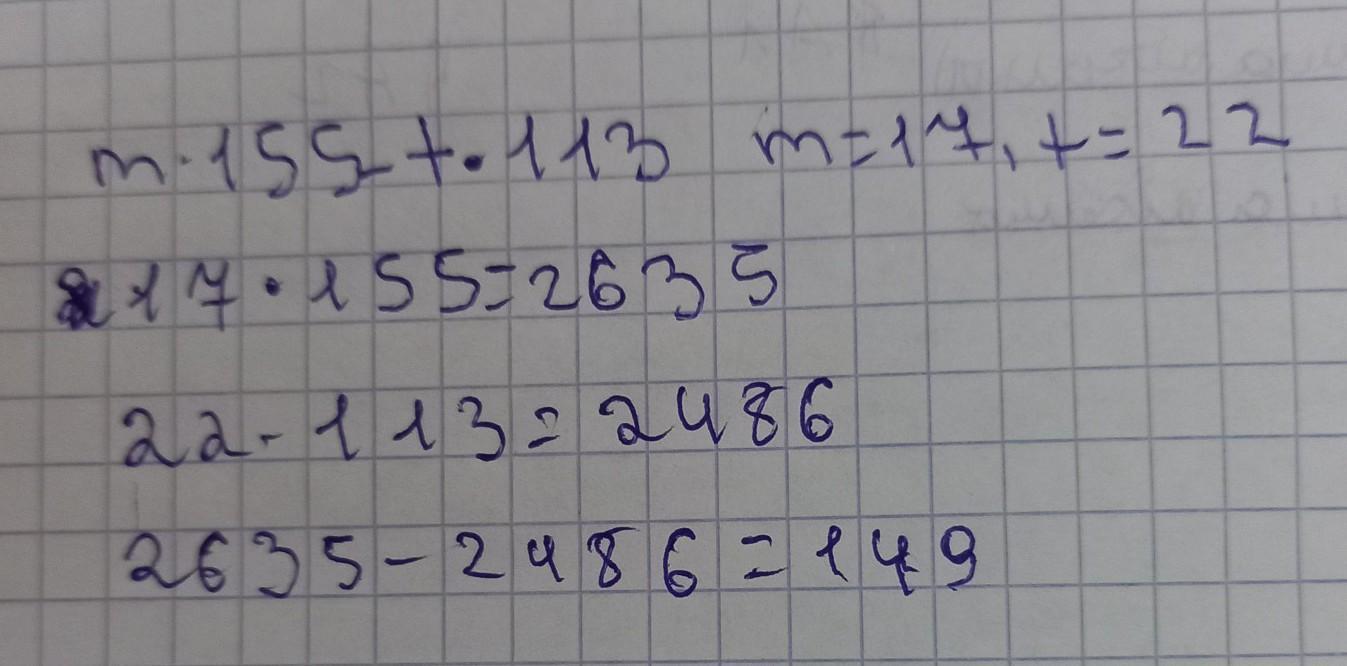 m·155-t·113 m=17, t=22
17·155=2635
22·113=2486
2635-2486=149